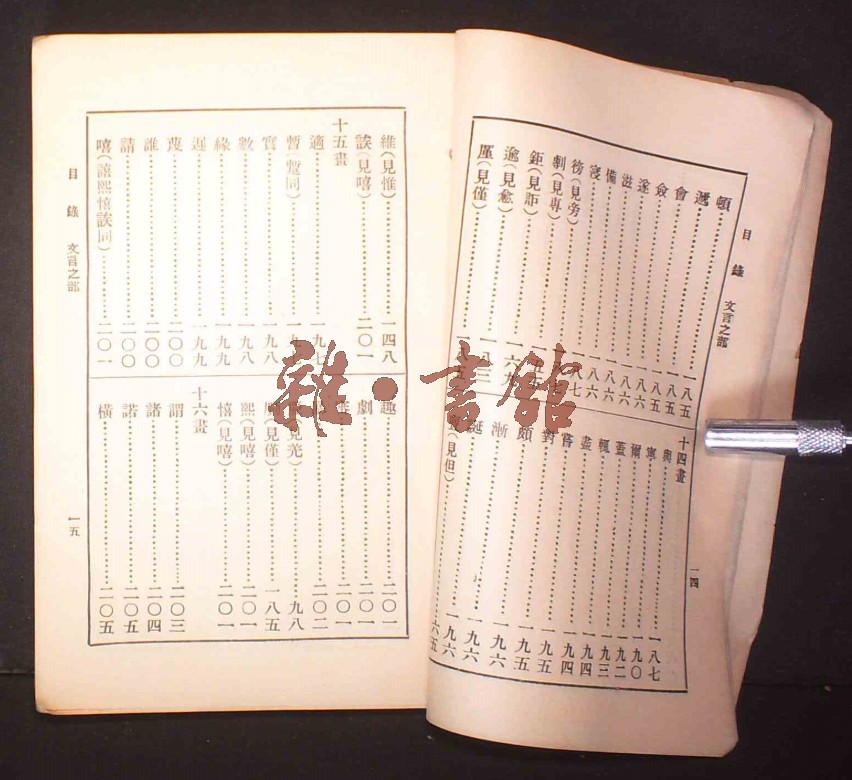 目錄 文言之部
頓……一八五
遞……一八五
會……一八五
僉……一八六
遂……一八六
滋……一八六
備……一八六
寖……一八七
徬(見旁)……
剸(見專)……
鉅(見詎)……一六九
逾(見愈)……一八三
廑(見僅)……
十四畫
與……一八七
寧……一九〇
爾……一九二
蓋……一九三
輒……一九四
盡……一九四
嘗……一九五
對……一九五
頗……一九六
漸……一九六
誕……一九六
(見但)……六五
一四
維(見惟)……一四八
誒(見嘻)……二〇一
十五畫
適……一九七
暫(蹔同)……一九
實……一九八
數……一九八
緣……一九九
遲……一九九
蔑……二〇〇
誰……二〇〇
請……二〇〇
嘻(譆熙懷誒同)……二〇一
趣……二〇一
劇……二〇一
……二〇一
……二〇二
(見光)……九八
(見僅)……一八五
熙(見嘻)……二〇一
僖(見嘻)……二〇一
十六畫
謂……二〇三
諸……二〇四
諾……二〇五
橫……二〇五
目錄 文言之部
一五
雜·書館